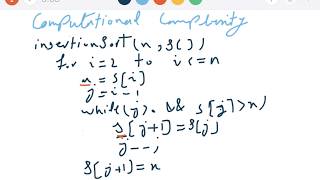 Computational Complexity
insertionSort(n, S[])
for i=2 to i<=n
x = S[i]
j = i-1
while(j>0 && S[j]>x)
S[j+1] = S[j]
j--;
S[j+1] = x